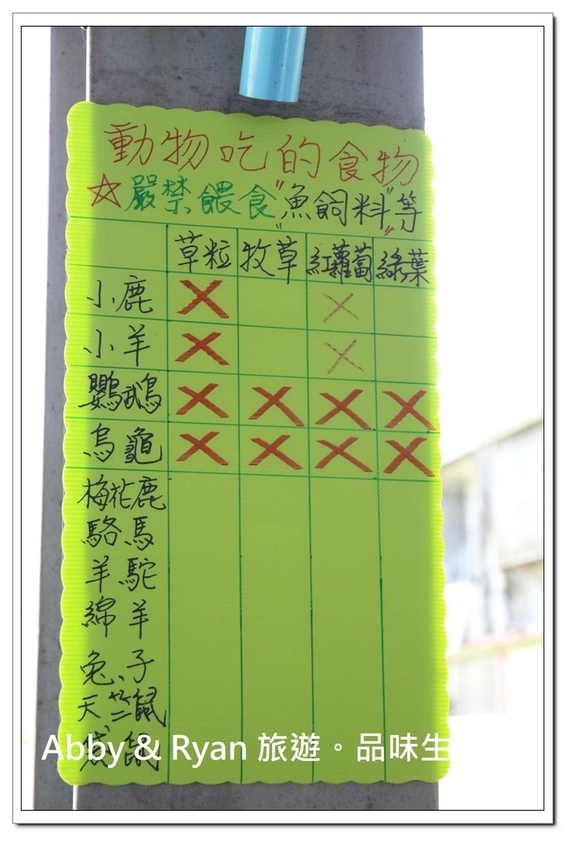 動物吃的食物
☆嚴禁餵食"魚飼料"等
草粒 牧草 紅蘿蔔 綠葉
小鹿 X X
小羊 X X
鸚鵡 X X X X
烏龜 X X X X
梅花鹿
駱馬
羊駝
綿羊
兔子
天竺鼠
Abby & Ryan 旅遊。品味生